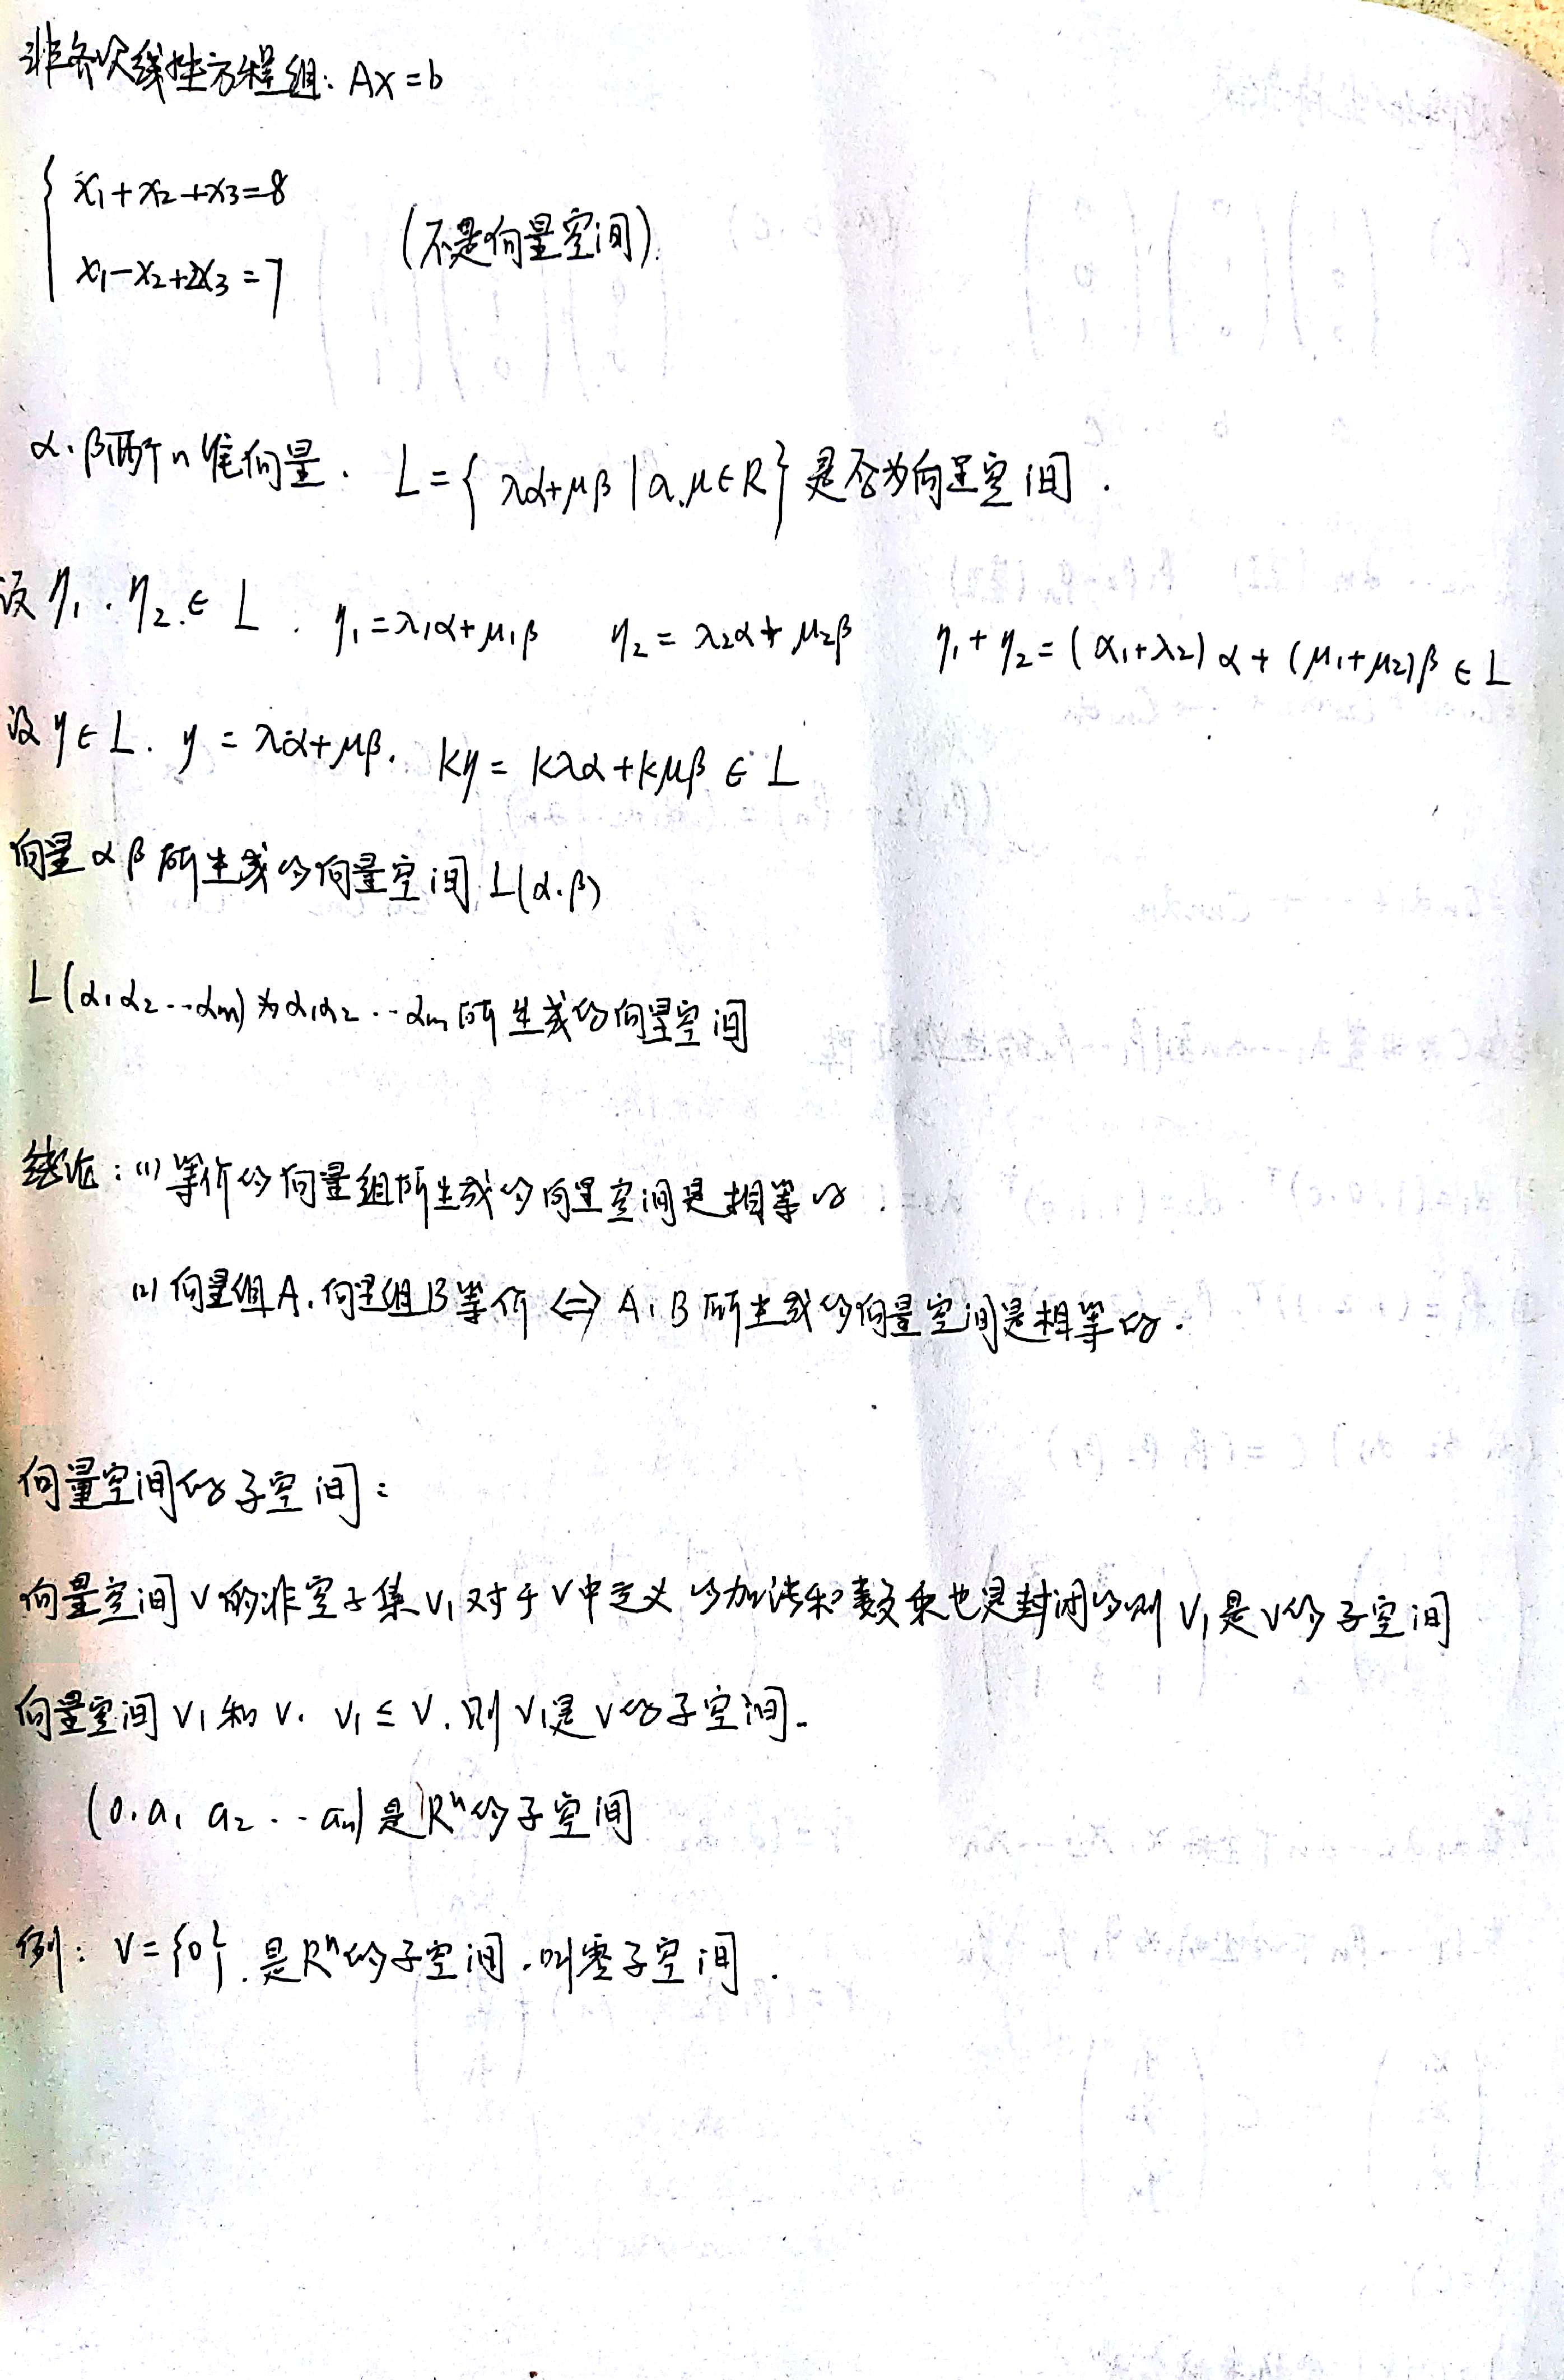 非齐次线性方程组: Ax=b
{ x₁+x₂+x₃=8
x₁-x₂+2x₃=7
(不是向量空间).
α.β两个n维向量. L={λα+μβ|a.μ∈R}是否为向量空间.
设η₁.η₂.∈L. η₁=λ₁α+μ₁β η₂=λ₂α+μ₂β η₁+η₂=(α₁+λ₂)α+(μ₁+μ₂)β∈L
设η∈L. y=λα+μβ. kη=kλα+kμβ∈L
向量αβ所生成的向量空间L(α.β)
L(α₁α₂...αm)为α₁α₂...αm所生成的向量空间
结论:(1)等价的向量组所生成的向量空间是相等的.
(2)向量组A.向量组B等价⇔A.B所生成的向量空间是相等的.
向量空间的子空间:
向量空间V的非空子集V₁对于V中定义的加法和数乘也是封闭的则V₁是V的子空间
向量空间V₁和V. V₁≤V.则V₁是V的子空间.
(0.a₁ a₂...an)是Rⁿ的子空间
例: V={0}.是Rⁿ的子空间.叫零子空间.